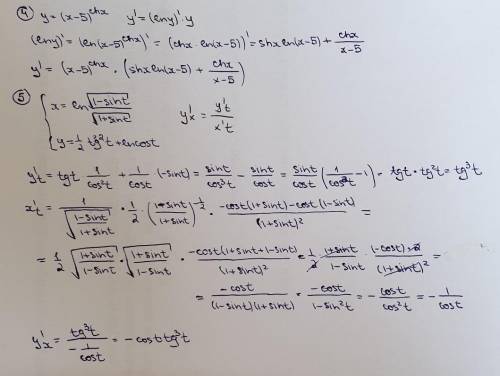 ④ y = (x-5)^chx   y' = (lny)'·y
(lny)' = (ln(x-5)^chx)' = (chx·ln(x-5))' = shx ln(x-5) + chx/(x-5)
y' = (x-5)^chx · (shx ln(x-5) + chx/(x-5))
⑤ { x = ln √(1-sint)/√(1+sint)   y'x = y't/x't
y = 1/2 tg²t + lncost
y't = tgt · 1/cos²t + 1/cost · (-sint) = sint/cos³t - sint/cost = sint/cost (1/cos²t - 1) = tgt·tg²t = tg³t
x't = 1/√((1-sint)/(1+sint)) · 1/2 · ((1-sint)/(1+sint))^(-1/2) · (-cost(1+sint)-cost(1-sint))/(1+sint)² =
= 1/2 √((1+sint)/(1-sint)) · √((1+sint)/(1-sint)) · (-cost(1+sint+1-sint))/(1+sint)² = 1/2 · (1+sint)/(1-sint) · ((-cost)·2)/(1+sint)² =
= -cost/((1-sint)(1+sint)) = -cost/(1-sin²t) = -cost/cos²t = -1/cost
y'x = tg³t/(-1/cost) = -cost tg³t